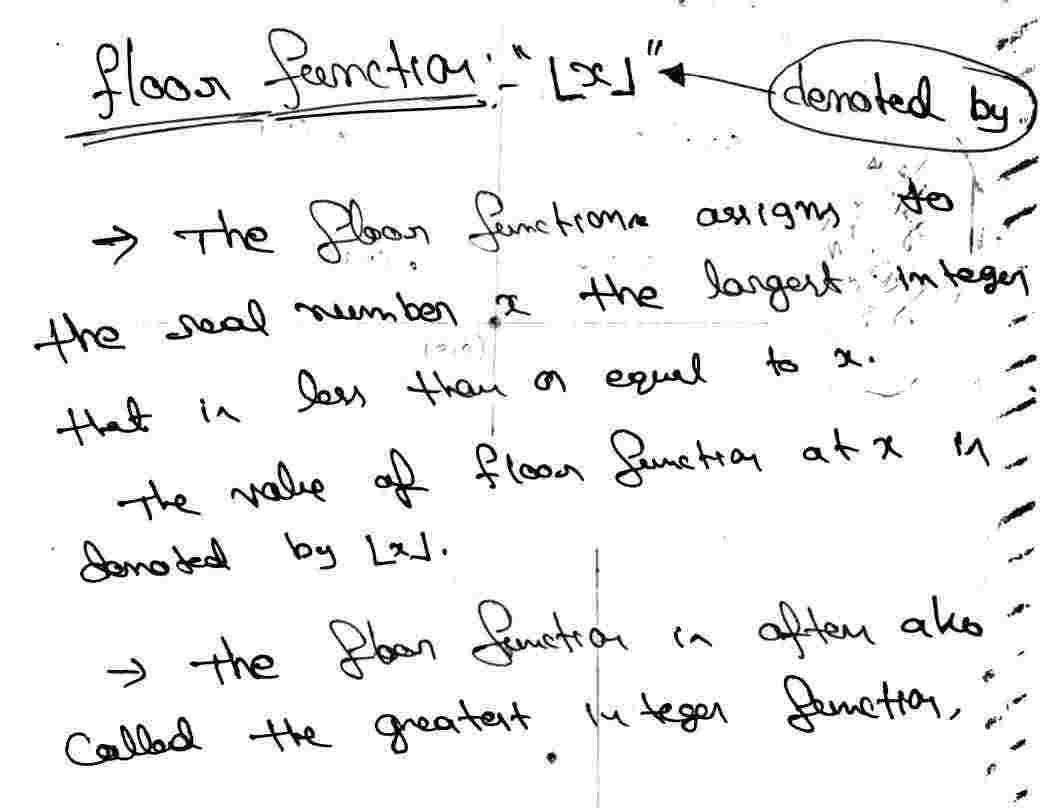 floor function:- "⌊x⌋" denoted by
→ The floor function assigns to
the real number x the largest integer
that is less than or equal to x.
The value of floor function at x is
denoted by ⌊x⌋.
→ The floor function is often also
called the greatest integer function.